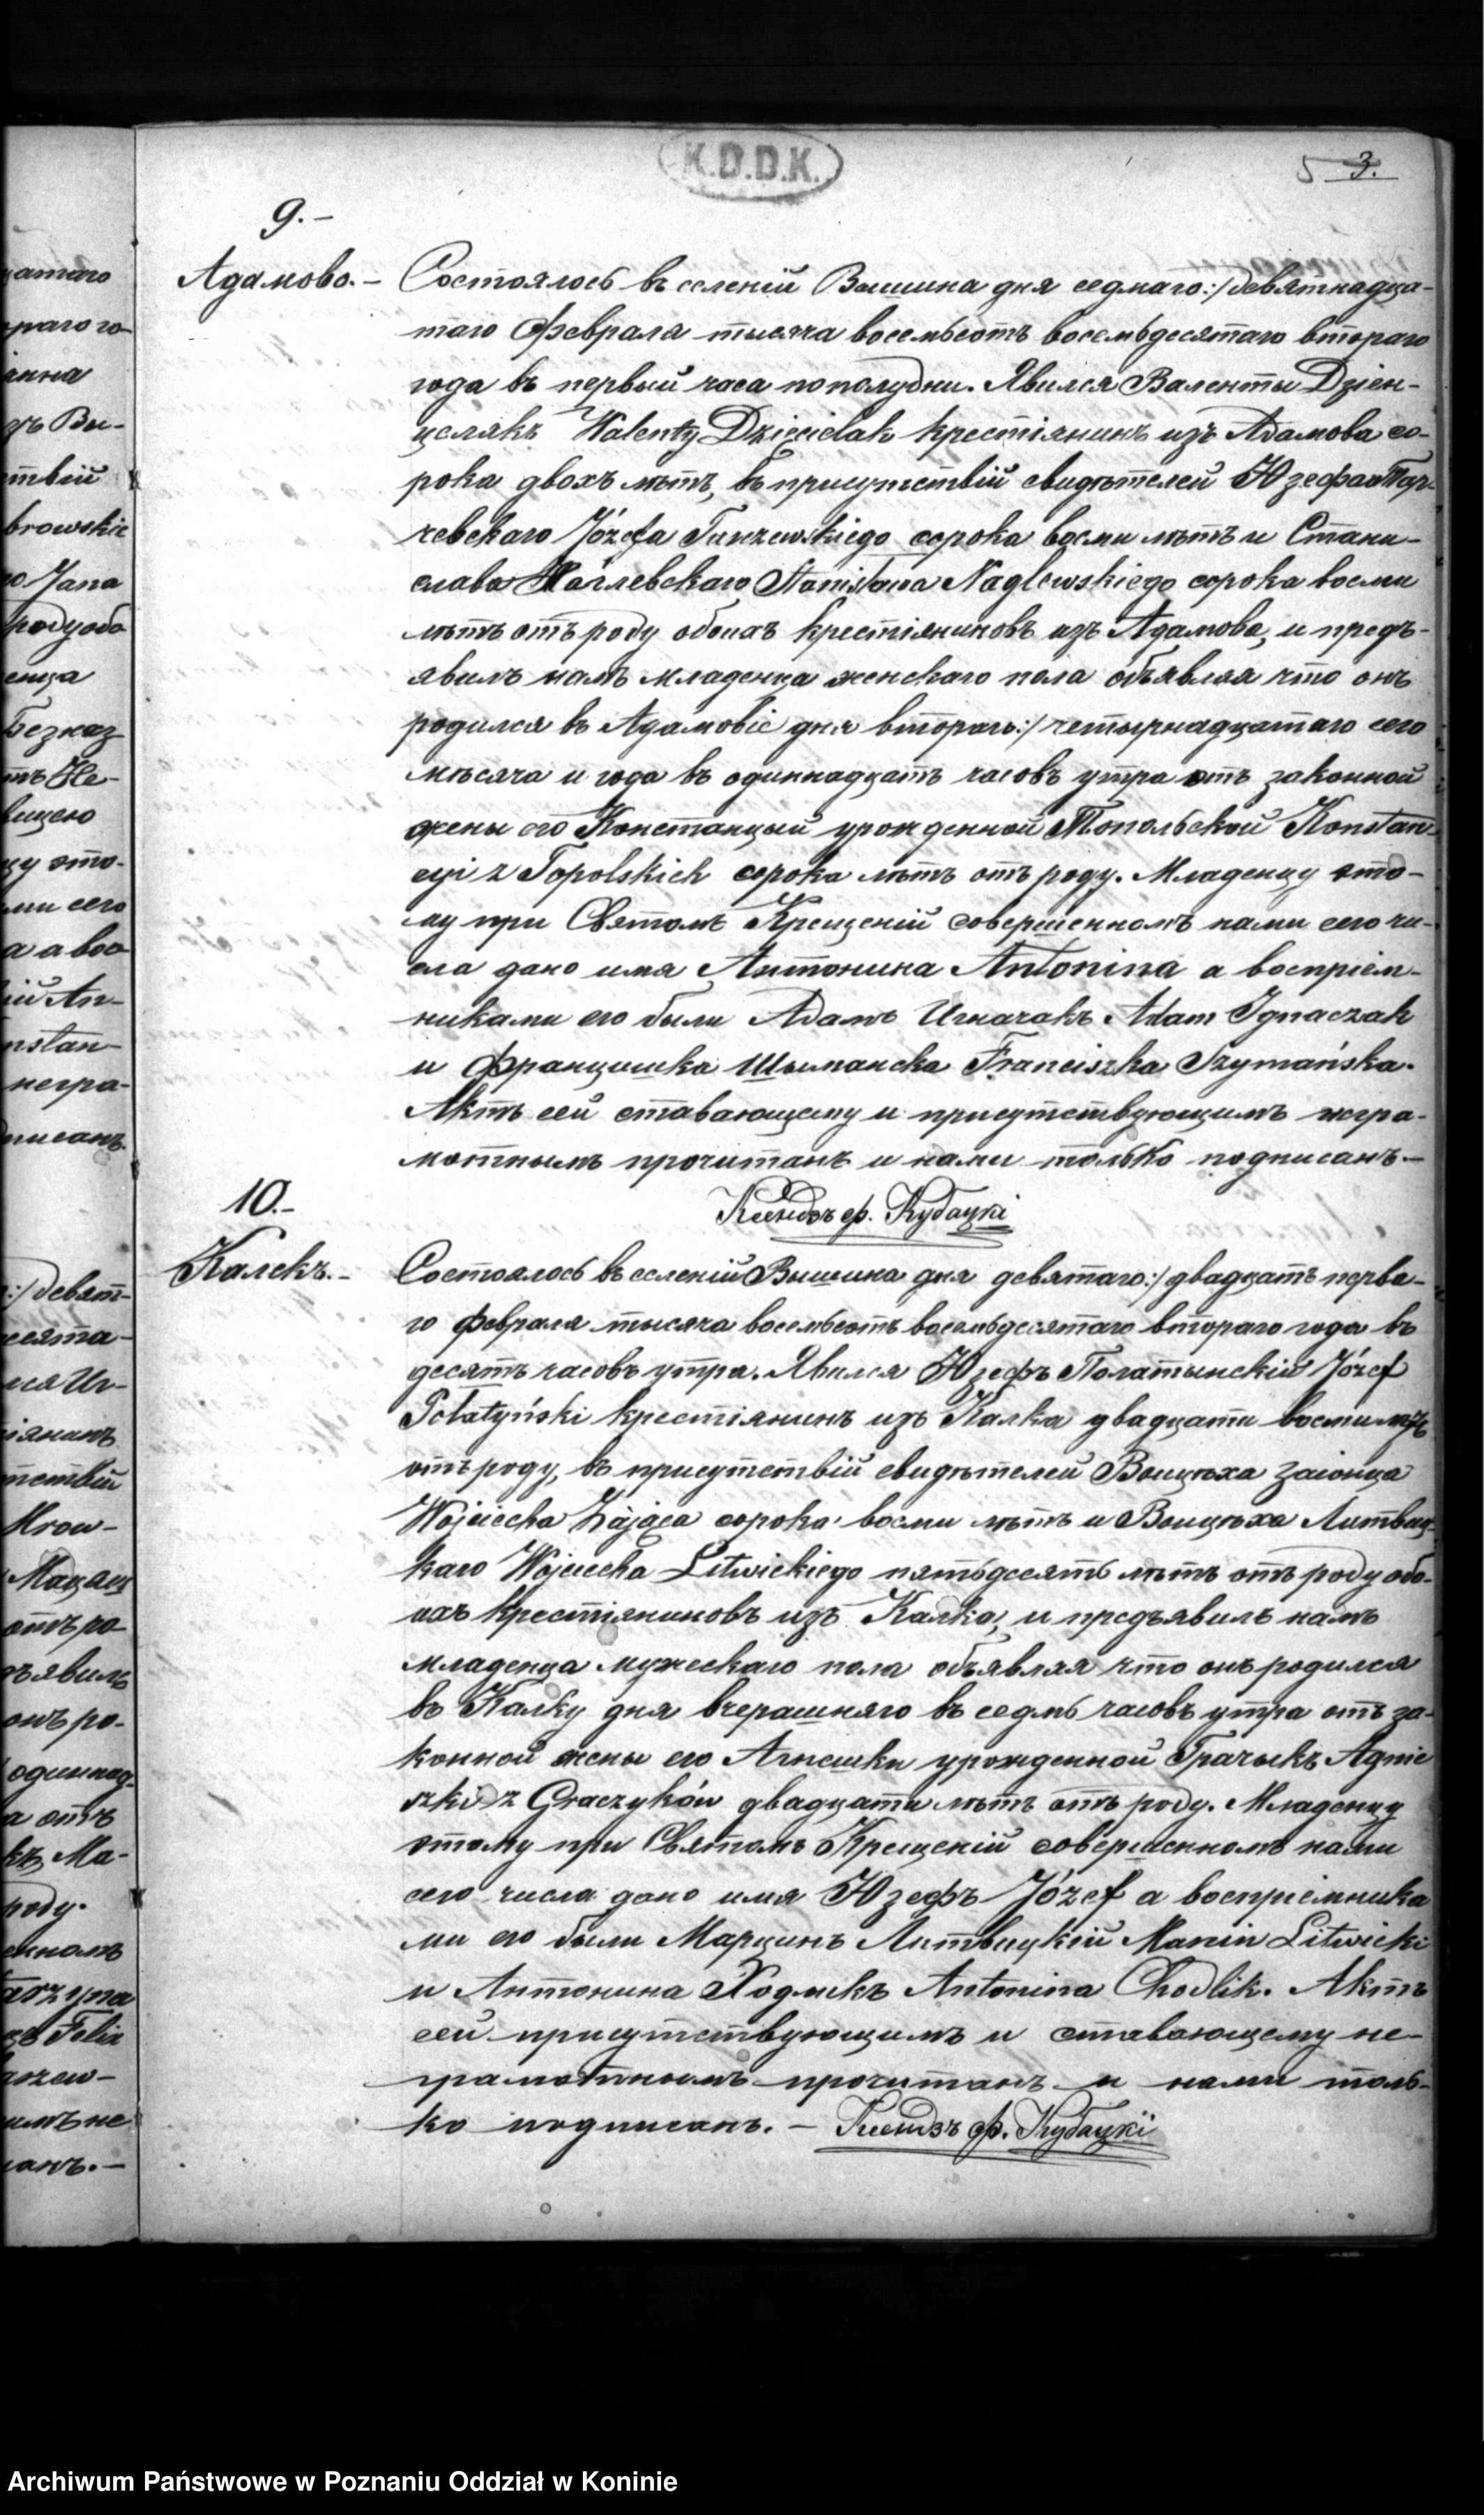 K.D.D.K.
5 3.
9.-
Адамово.-
Состоялось въ селеній Вышина дня седмаго:/девятнадца-
таго Февраля тысяча восемьсотъ восемьдесятаго втораго
года въ первый часа пополудни. Явился Валенты Дзѣн-
целякъ Walenty Dzięcielak крестіянинъ изъ Адамова со-
рока двохъ лѣтъ, въ присутствій свидѣтелей Юзефа
чевскаго Józefa сорока восми лѣтъ и Стани-
слава Наглевскаго Stanisława Naglewskiego сорока восми
лѣтъ отъ роду обоихъ крестіяниновъ изъ Адамова, и предъ-
явилъ намъ младенца женскаго пола объявляя что онъ
родился въ Адамовіе дня втораго:/четырнадцатаго сего
мѣсяча и года въ одиннадцать часовъ утра отъ законной
жены его Констанцый урожденной Топольской Konstan-
cyi z Topolskich сорока лѣтъ отъ роду. Младенцу это-
му при Святомъ Крещеній совершенномъ нами сего чи-
сла дано имя Антонина Antonina а воспріем-
никами его были Адамъ Игначакъ Adam Ignaczak
и Францишка Шыманска Franciszka Szymańska.
Актъ сей ставающему и присутствующимъ негра-
мотнымъ прочитанъ и нами только подписанъ.-
Ксендзъ Ф. Кубацкі
10.-
Калекъ.-
Состоялось въ селеній Вышина дня девятаго:/двадцать перва-
го февраля тысяча восемьсотъ восемьдесятаго втораго года въ
десять часовъ утра. Явился Юзефъ Полатынскій Józef
Połatyński крестіянинъ изъ Калка двадцати восми лѣтъ
отъ роду, въ присутствій свидѣтелей Войцѣха Заіонца
Wojciecha Zająca сорока восми лѣтъ и Войцѣха Литвиц-
каго Wojciecha Litwickiego пятьдесять лѣтъ отъ роду обо-
ихъ крестіяниновъ изъ Калка, и предъявилъ намъ
младенца мужескаго пола объявляя что онъ родился
въ Калку дня вчерашняго въ седмь часовъ утра отъ за-
конной жены его Агнешки урожденной Грачыкъ Agnie
szki z Graczyków двадцати лѣтъ отъ роду. Младенцу
этому при Святомъ Крещеній совершенномъ нами
сего числа дано имя Юзефъ Józef а воспріемника
ми его были Марцинъ Литвицкій Marcin Litwicki
и Антонина Ходликъ Antonina Chodlik. Актъ
сей присутствующимъ и ставающему не-
грамотнымъ прочитанъ и нами толь-
ко подписанъ. - Ксендзъ Ф. Кубацкі
Archiwum Państwowe w Poznaniu Oddział w Koninie